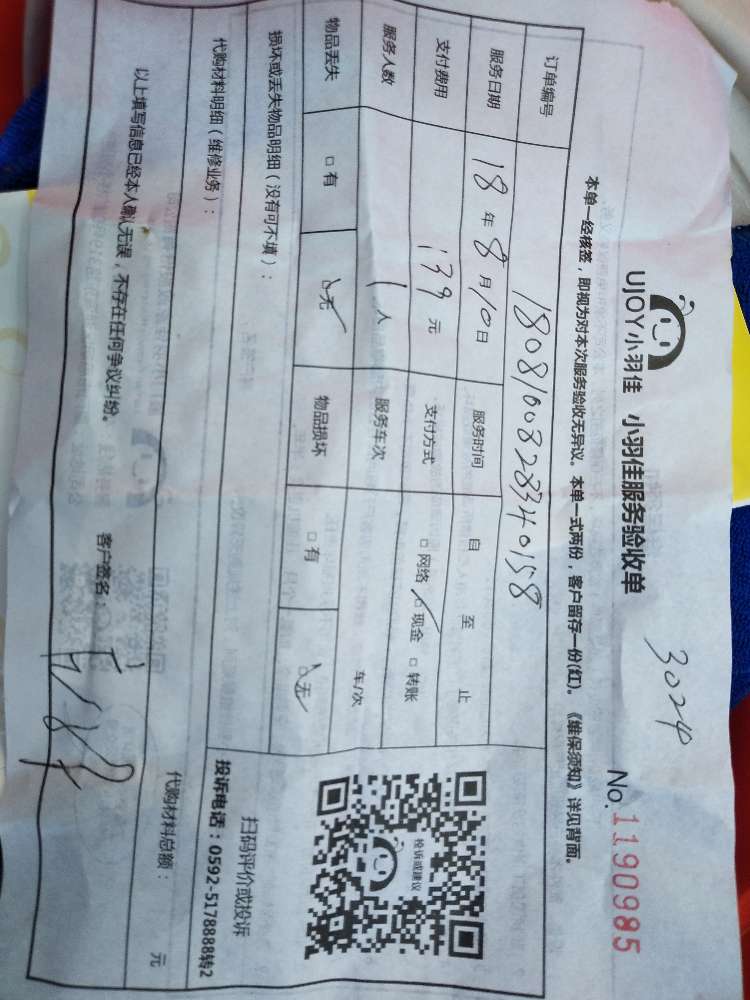 3024
UJOY小羽佳 小羽佳服务验收单 No.1190985
本单一经核签，即视为对本次服务验收无异议。本单一式两份，客户留存一份(红)。《维保须知》详见背面。
订单编号 18081008283340158
服务日期 18年8月10日 服务时间 自 至 止
支付费用 139元 支付方式 □网络 □现金 □转账
服务人数 1人 服务车次 车/次
物品丢失 □有 □无 物品损坏 □有 □无
损坏或丢失物品明细（没有可不填）：
投诉或建议
扫码评价或投诉
投诉电话：0592-5178888转2
代购材料明细（维修业务）：
代购材料总额： 元
以上填写信息已经本人确认无误，不存在任何争议纠纷。 客户签名：